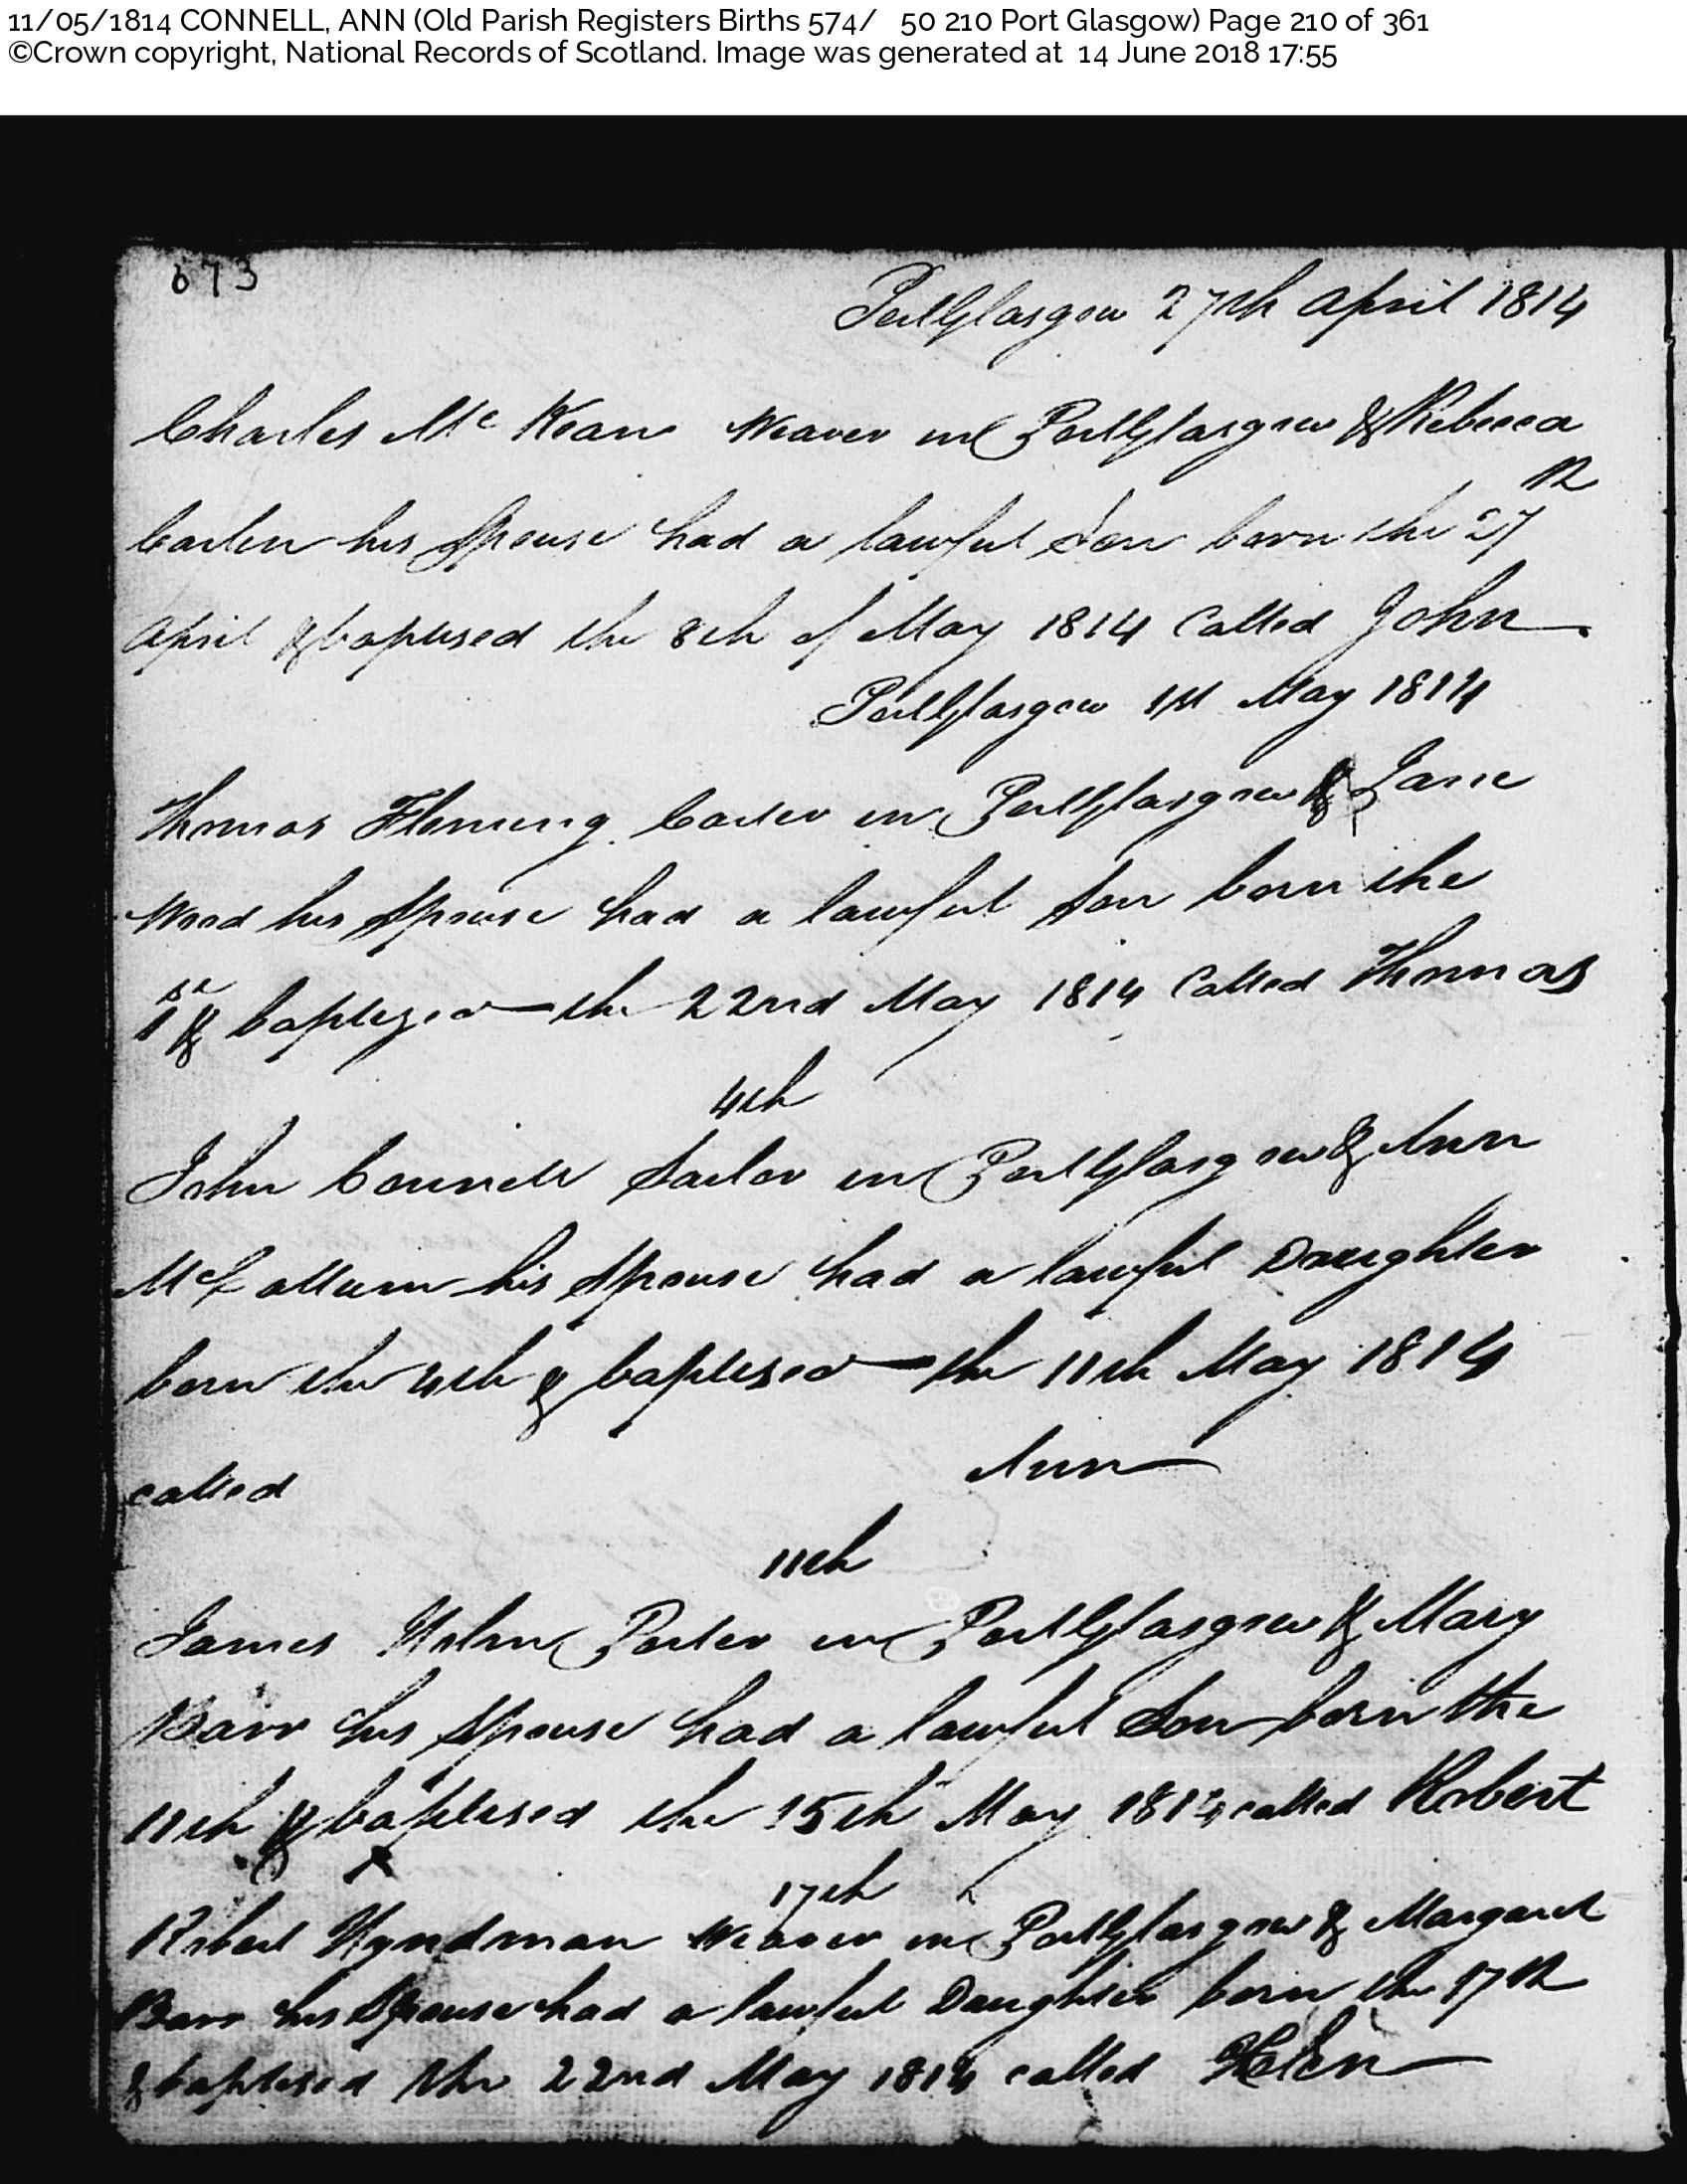 11/05/1814 CONNELL, ANN (Old Parish Registers Births 574/ 50 210 Port Glasgow) Page 210 of 361
©Crown copyright, National Records of Scotland. Image was generated at 14 June 2018 17:55
673
PortGlasgow 27th April 1814
Charles Mc Kean Weaver in PortGlasgow & Rebecca
his Spouse had a lawful Son born the 27th
April & baptised the 8th of May 1814 Called John
PortGlasgow 1st May 1814
Thomas Fleming Carter in PortGlasgow & Jane
Wood his Spouse had a lawful Son born the
1st & baptized the 22nd May 1814 Called Thomas
4th
John Connell Sailor in PortGlasgow & Ann
McCallum his Spouse had a lawful Daughter
born the 4th & baptised the 11th May 1814
called Ann
11th
James Porter in PortGlasgow & Mary
Barr his Spouse had a lawful Son born the
11th & baptised the 15th May 1814 called Robert
17th
Robert Hyndman Weaver in PortGlasgow & Margaret
Barr his Spouse had a lawful Daughter born the 17th
& baptised the 22nd May 1814 called Helen